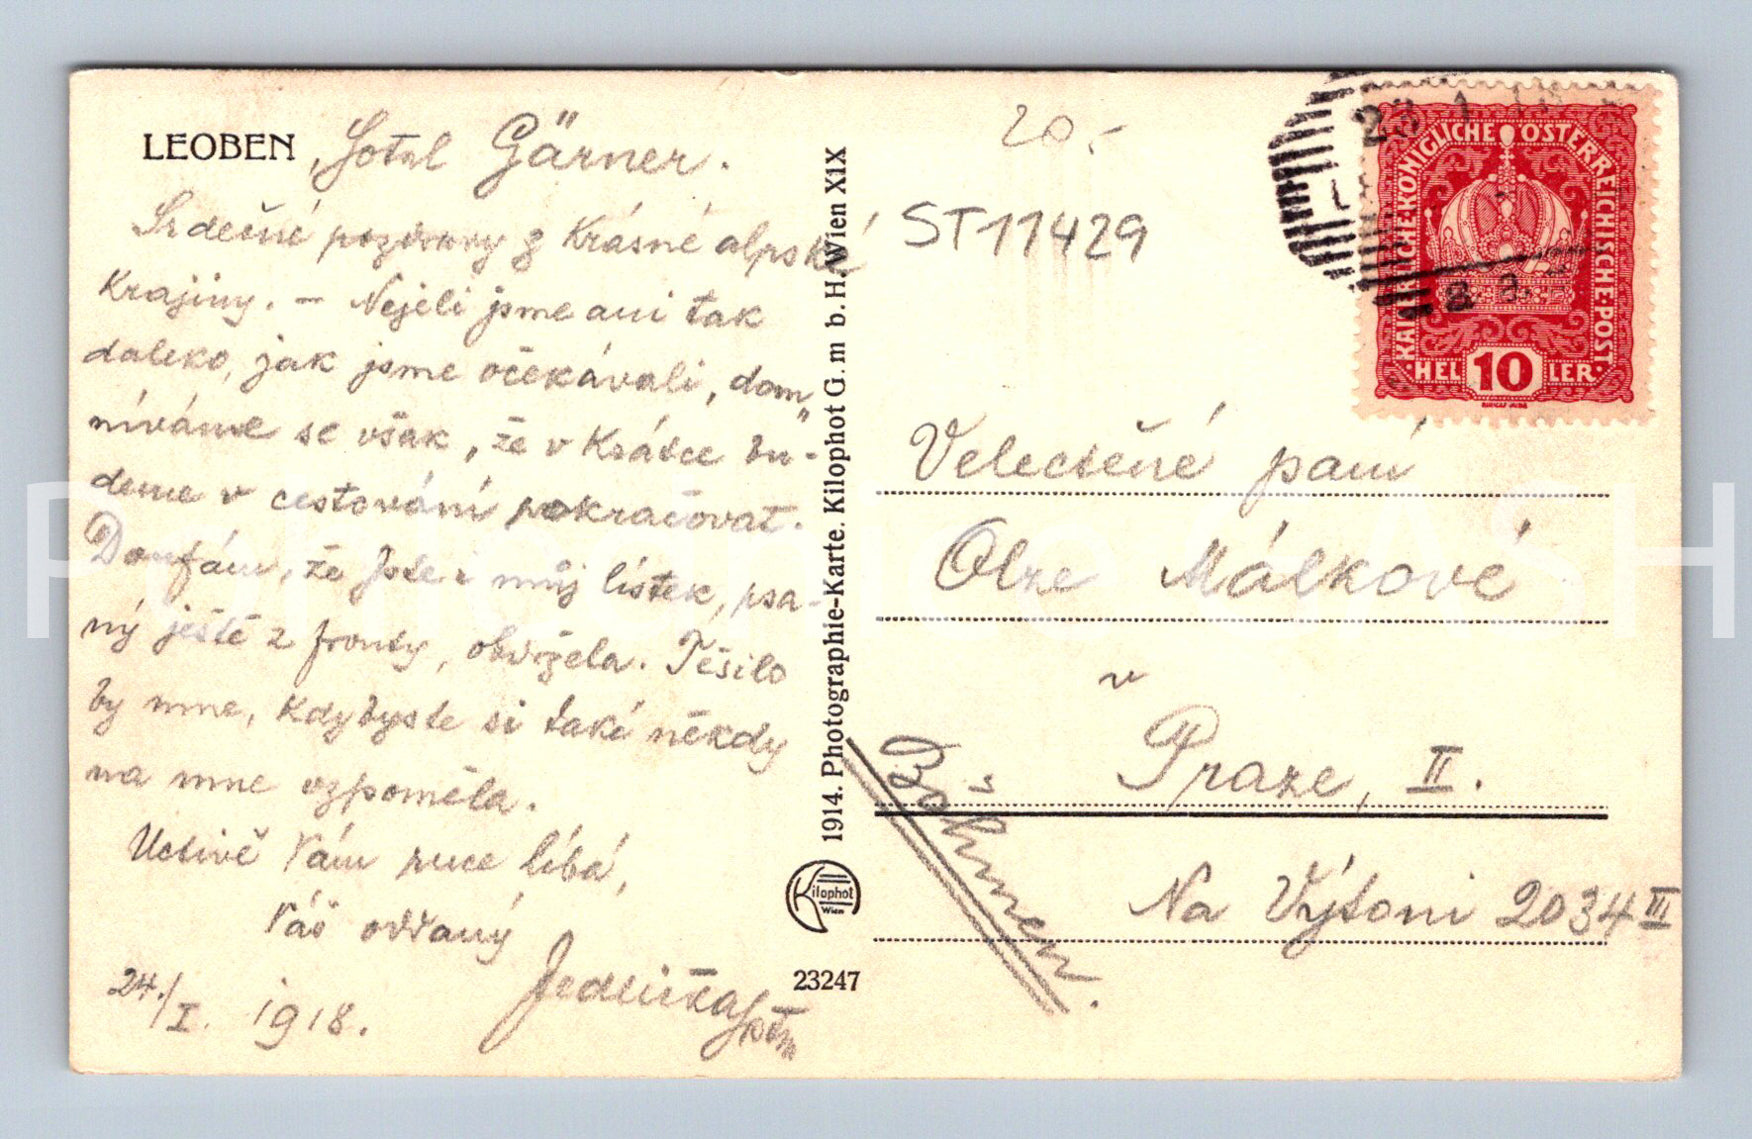 LEOBEN, Hotel Gärner.
Srdečné pozdravy z krásné alpské
krajiny. – Nejeli jsme ani tak
daleko, jak jsme očekávali, dom„
níváme se však, že v krátce bu-
deme v cestování pokračovat.
Doufám, že jste i můj lístek, psa-
ný ještě z fronty, obdržela. Těšilo
by mne, kdybyste si také někdy
na mne vzpoměla.
Uctivě Vám ruce líbá,
Váš oddaný
Jedlička
24./I. 1918.
1914. Photographie-Karte. Kilophot G. m b. H. Wien XIX
Kilophot
Wien
23247
20.-
ST11429
KAISERLICHE KÖNIGLICHE ÖSTERREICHISCHE POST
10
HELLER
Velectěné paní
Olze Málkové
v
Praze, II.
Na Výtoni 2034 III
Böhmen.